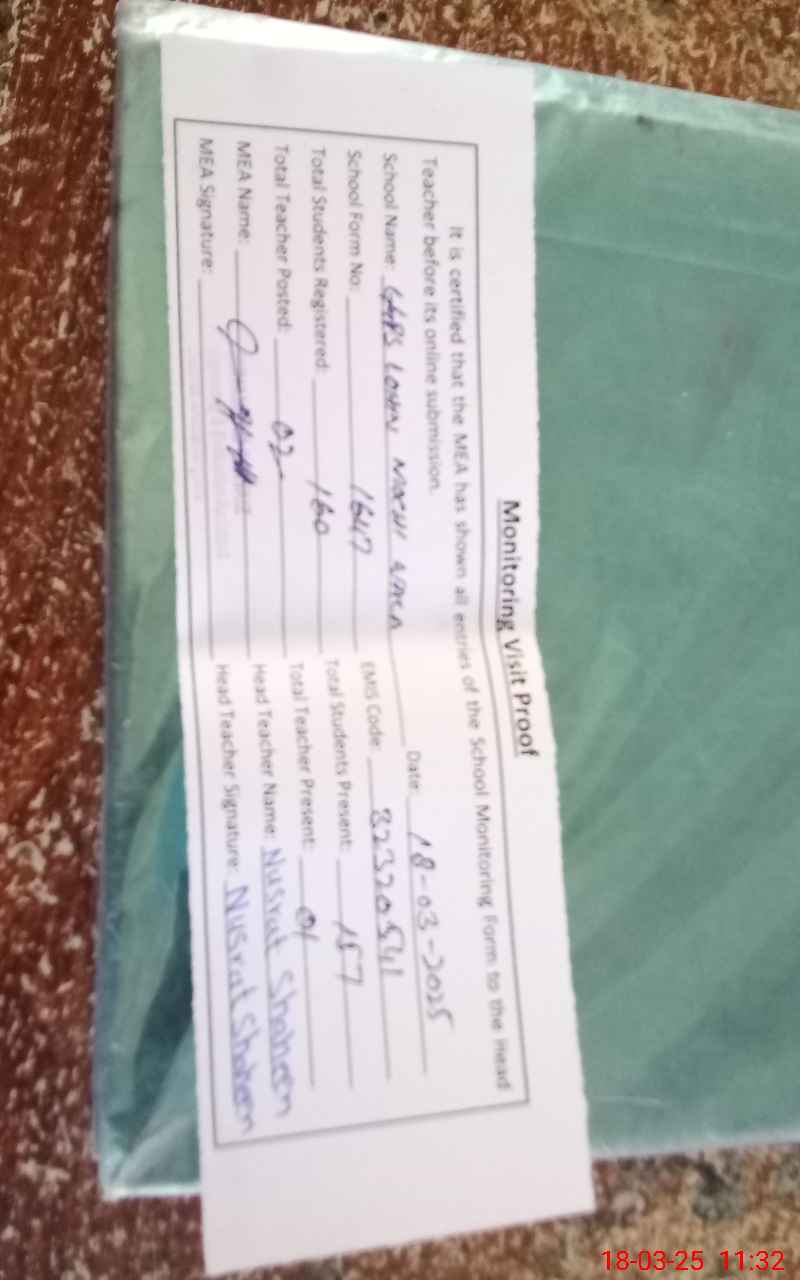 Monitoring Visit Proof
It is certified that the MEA has shown all entries of the School Monitoring Form to the Head
Teacher before its online submission.
Date: 18-03-2025
School Name: GGPS
School Form No: 1647 EMIS Code: 32320541
Total Students Registered: 160 Total Students Present: 157
Total Teacher Posted: 02 Total Teacher Present: 01
MEA Name: Head Teacher Name: Nusrat Shaheen
MEA Signature: Head Teacher Signature: Nusrat Shaheen
18-03-25 11:32